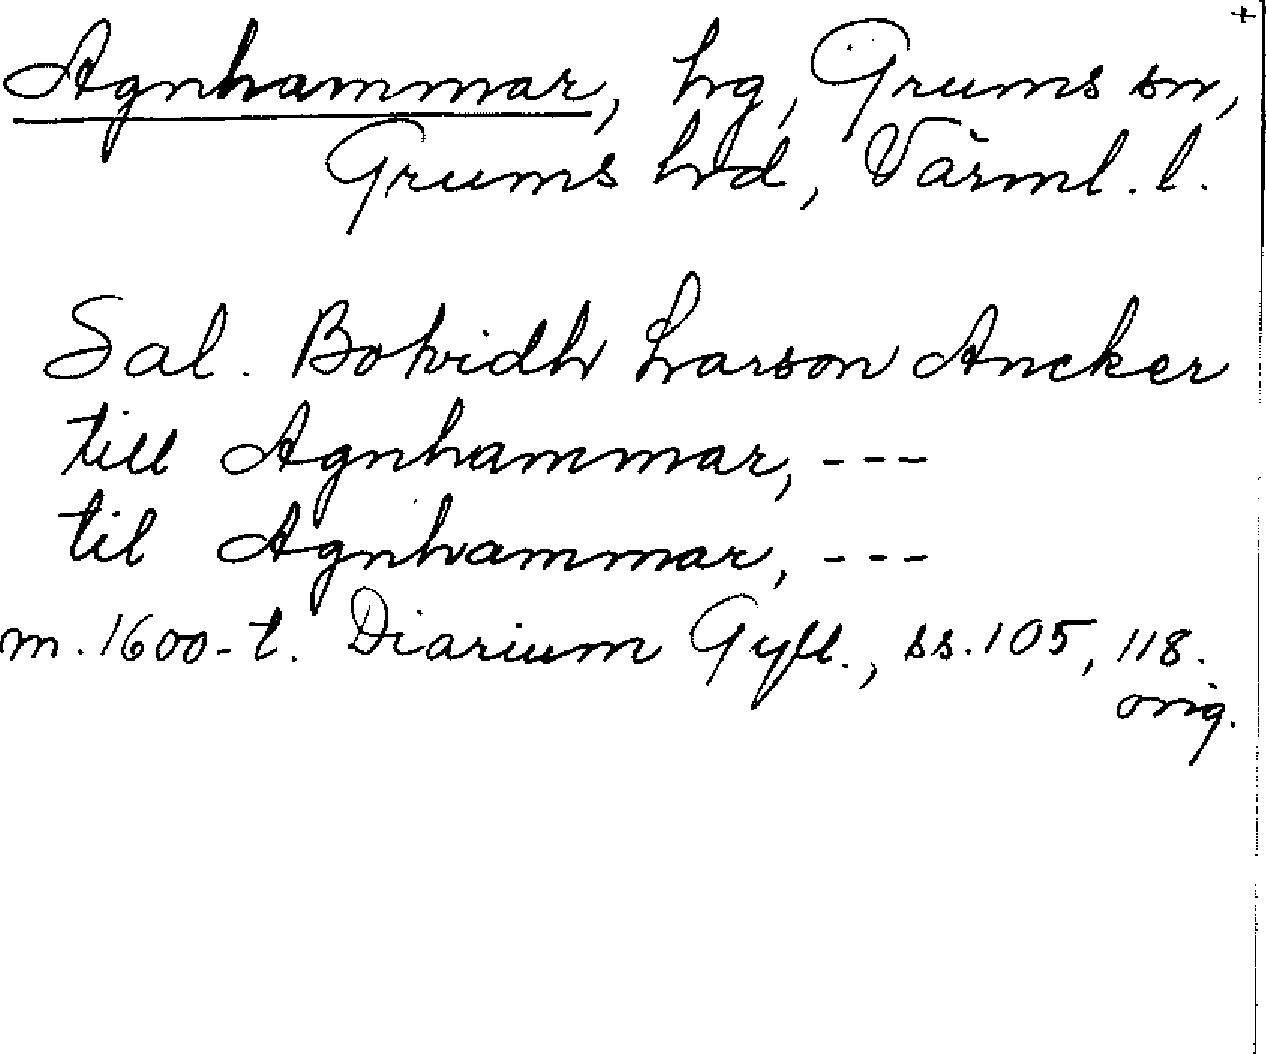 Agnhammar, hg, Grums sn,
Grums hd, Värml. l.
Sal. Botvidh Larson Ancker
till Agnhammar, ---
til Agnhammar, ---
m. 1600-t. Diarium Gyll., ss. 105, 118.
orig.